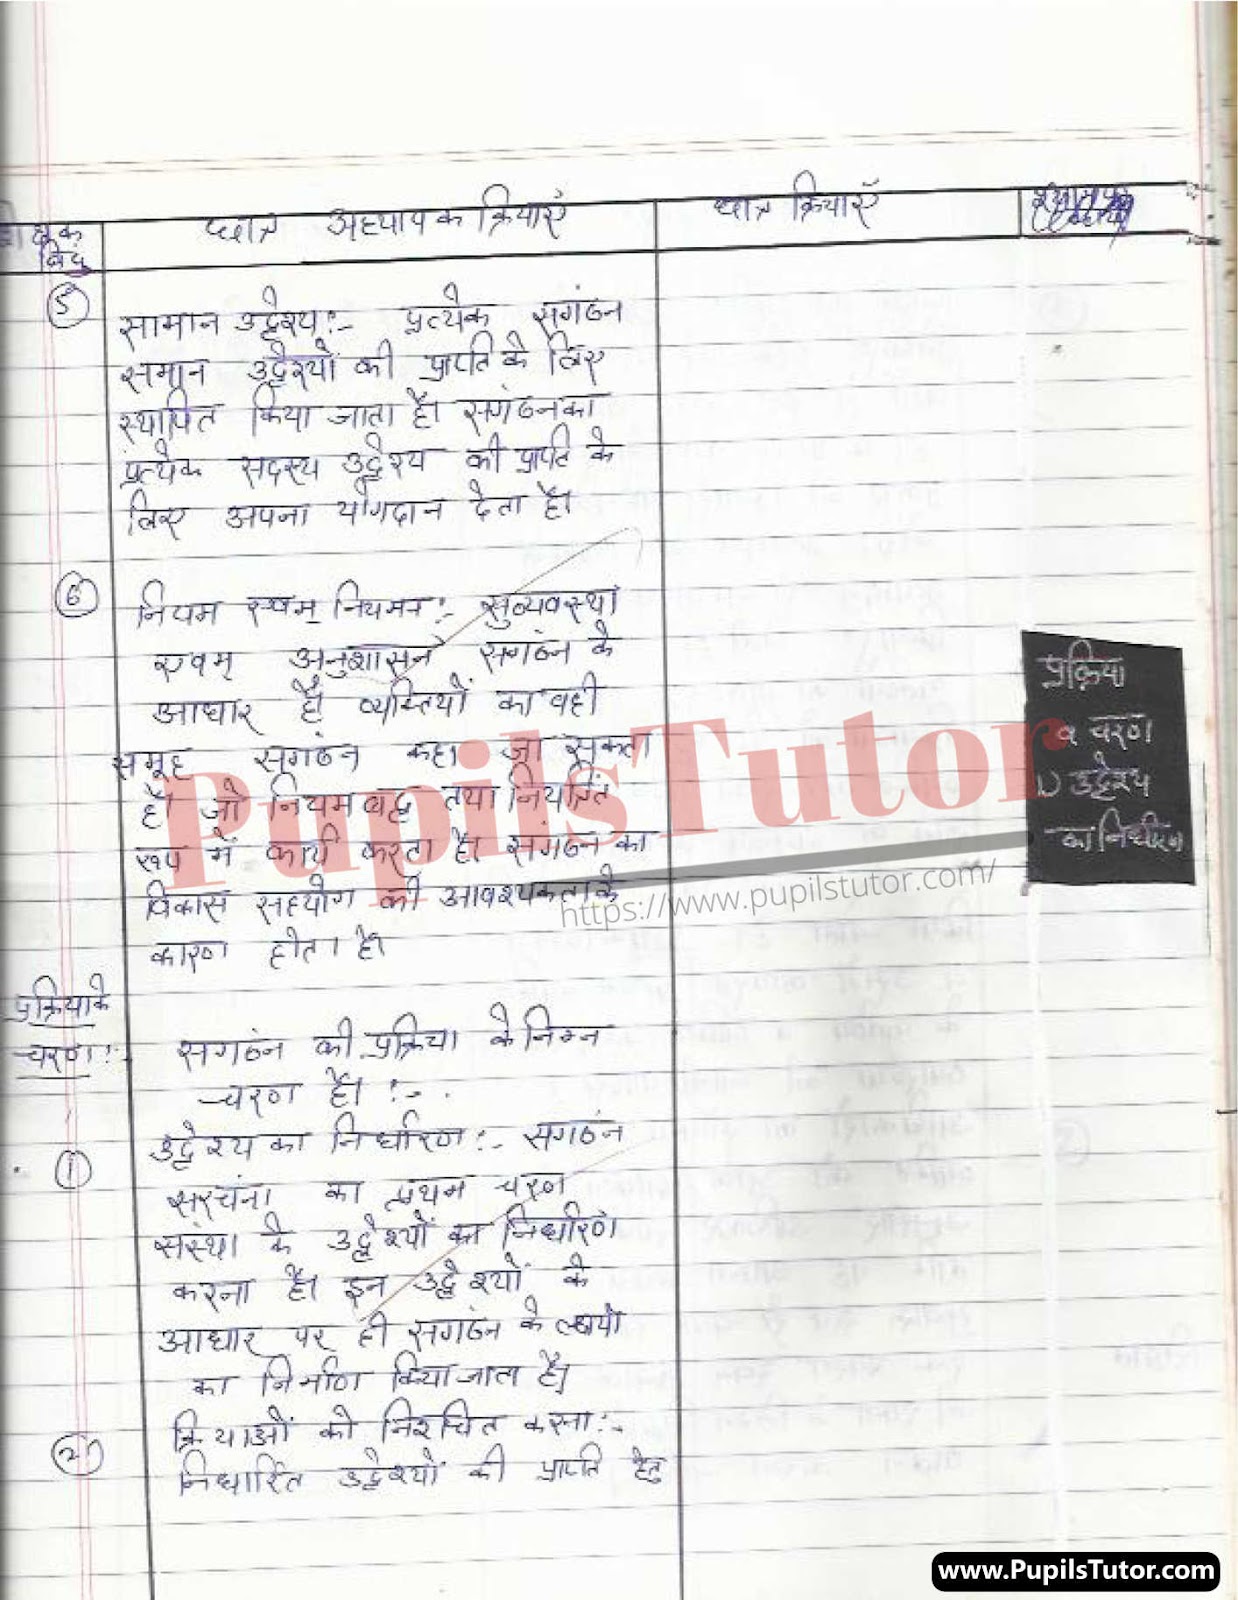 छात्र अध्यापक क्रियाएँ
छात्र क्रियाएँ
बिंदु
5
सामान उद्देश्य:- प्रत्येक सगंठन
समान उद्देश्यों की प्राप्ति के लिए
स्थापित किया जाता है। सगंठन का
प्रत्येक सदस्य उद्देश्य की प्राप्ति के
लिए अपना योगदान देता है।
6
नियम एवम् नियमन:- सुव्यवस्था
एवम् अनुशासन सगठंन के
आधार है। व्यक्तियों का वही
समूह सगंठन कहा जा सकता
है। जो नियमबद्ध तथा नियंत्रित
रूप में कार्य करता है। संगठन का
विकास सहयोग की आवश्यकता के
कारण होता है।
प्रक्रिया
व चरण
1) उद्देश्य
का निर्धारण
प्रक्रिया के
चरण:-
सगठंन की प्रक्रिया के निम्न
चरण है। :-
1
उद्देश्य का निर्धारण:- सगठंन
सरचंना का प्रथम चरण
संस्था के उद्देश्यों का निर्धारण
करना है। इन उद्देश्यों के
आधार पर ही सगठंन के
का निर्माण किया जाता है।
2
क्रियाओं को निश्चित करना:-
निर्धारित उद्देश्यों की प्राप्ति हेतु
PupilsTutor
https://www.pupilstutor.com/
www.PupilsTutor.com